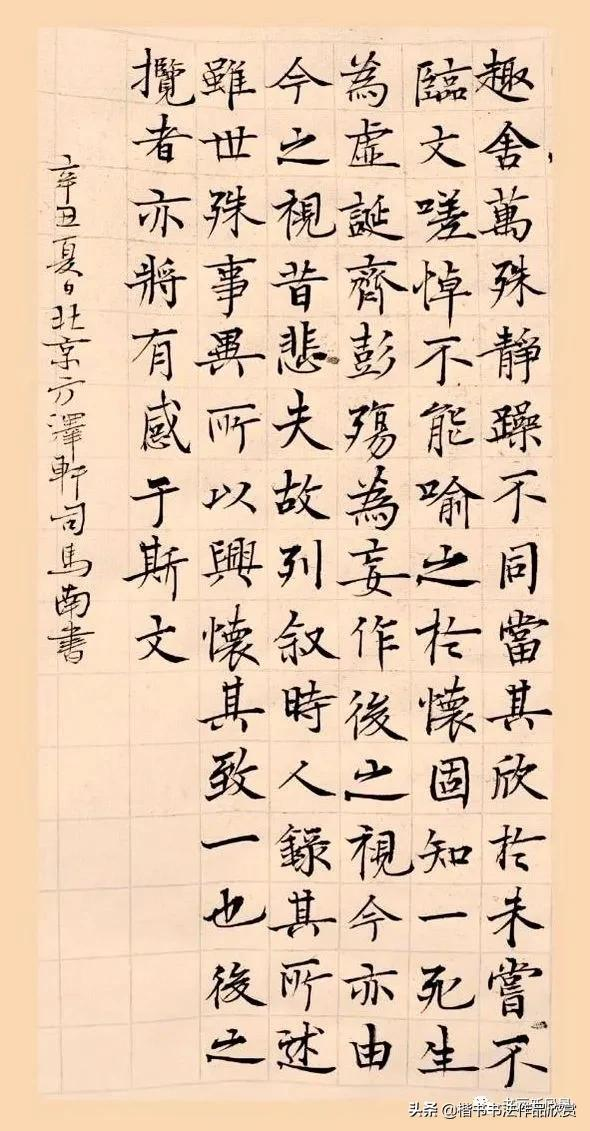 趣舍萬殊靜躁不同當其欣於未嘗不
臨文嗟悼不能喻之於懷固知一死生
為虛誕齊彭殤為妄作後之視今亦由
今之視昔悲夫故列叙時人錄其所述
雖世殊事異所以興懷其致一也後之
攬者亦將有感于斯文
辛丑夏日北京方澤軒司馬南書
头条 @楷书书法作品欣赏